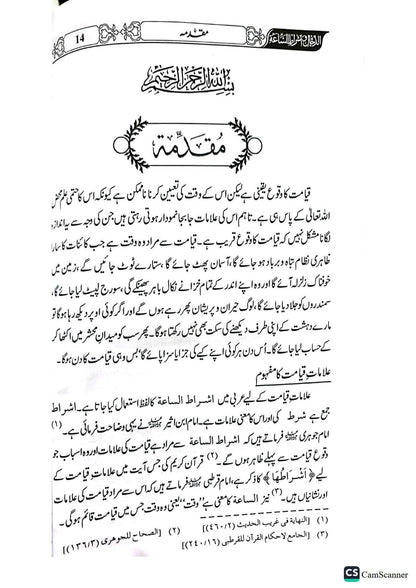 14
مقدمہ
بسم الله الرحمن الرحيم
مُقَدِّمَة
قیامت کا وقوع یقینی ہے لیکن اس کے وقت کی تعیین کرنا ناممکن ہے کیونکہ اس کا حتمی علم محض
اللہ تعالیٰ کے پاس ہی ہے۔ تاہم اس کی علامات جا بجا نمودار ہوتی رہتی ہیں جن کی وجہ سے یہ اندازہ
لگانا مشکل نہیں کہ قیامت کا وقوع قریب ہے۔ قیامت سے مراد وہ وقت ہے جب کائنات کا سارا
ظاہری نظام تباہ و برباد ہو جائے گا، آسمان پھٹ جائے گا، ستارے ٹوٹ جائیں گے، زمین میں
خوفناک زلزلہ آئے گا اور وہ اپنے اندر کے تمام خزانے نکال باہر پھینکے گی، سورج لپیٹ لیا جائے گا،
سمندروں کو جلا دیا جائے گا، لوگ حیران و پریشان پھر رہے ہوں گے اور اگر کوئی اوپر دیکھ رہا ہو گا تو
مارے دہشت کے اپنی طرف دیکھنے کی سکت بھی نہیں رکھتا ہو گا۔ پھر سب کو میدانِ محشر میں اکٹھا کر
کے حساب لیا جائے گا۔ اُس دن ہر کوئی اپنے کیے کی جزا یا سزا پائے گا' بس وہی قیامت کا دن ہو گا۔
علاماتِ قیامت کا مفہوم
علاماتِ قیامت کے لیے عربی میں اشراط الساعة کا لفظ استعمال کیا جاتا ہے۔ اشراط
جمع ہے شرط کی اور اس کا معنی علامات ہے۔ امام ابن اثیرؒ نے یہی وضاحت فرمائی ہے۔ (۱)
امام جوہریؒ فرماتے ہیں کہ اشراط الساعة سے مراد ہے قیامت کی علامات اور وہ اسباب جو
وقوعِ قیامت سے پہلے ظاہر ہوں گے۔ (۲) قرآن کریم کی جس آیت میں علاماتِ قیامت کے
لیے ﴿أَشْرَاطُهَا﴾ کا ذکر ہے، امام قرطبیؒ فرماتے ہیں کہ اس سے مراد قیامت کی علامات
اور نشانیاں ہیں۔ (۳) نیز الساعة کا معنی ہے ''وقت'' یعنی وہ وقت جس میں قیامت قائم ہو گی۔
(۱) [النهاية فى غريب الحديث (۲/۴۶۰)] (۲) [الصحاح للجوهرى (۳/۱۱۳۶)]
(۳) [الجامع لاحكام القرآن للقرطبى (۱۶/۲۴۰)]
CS CamScanner